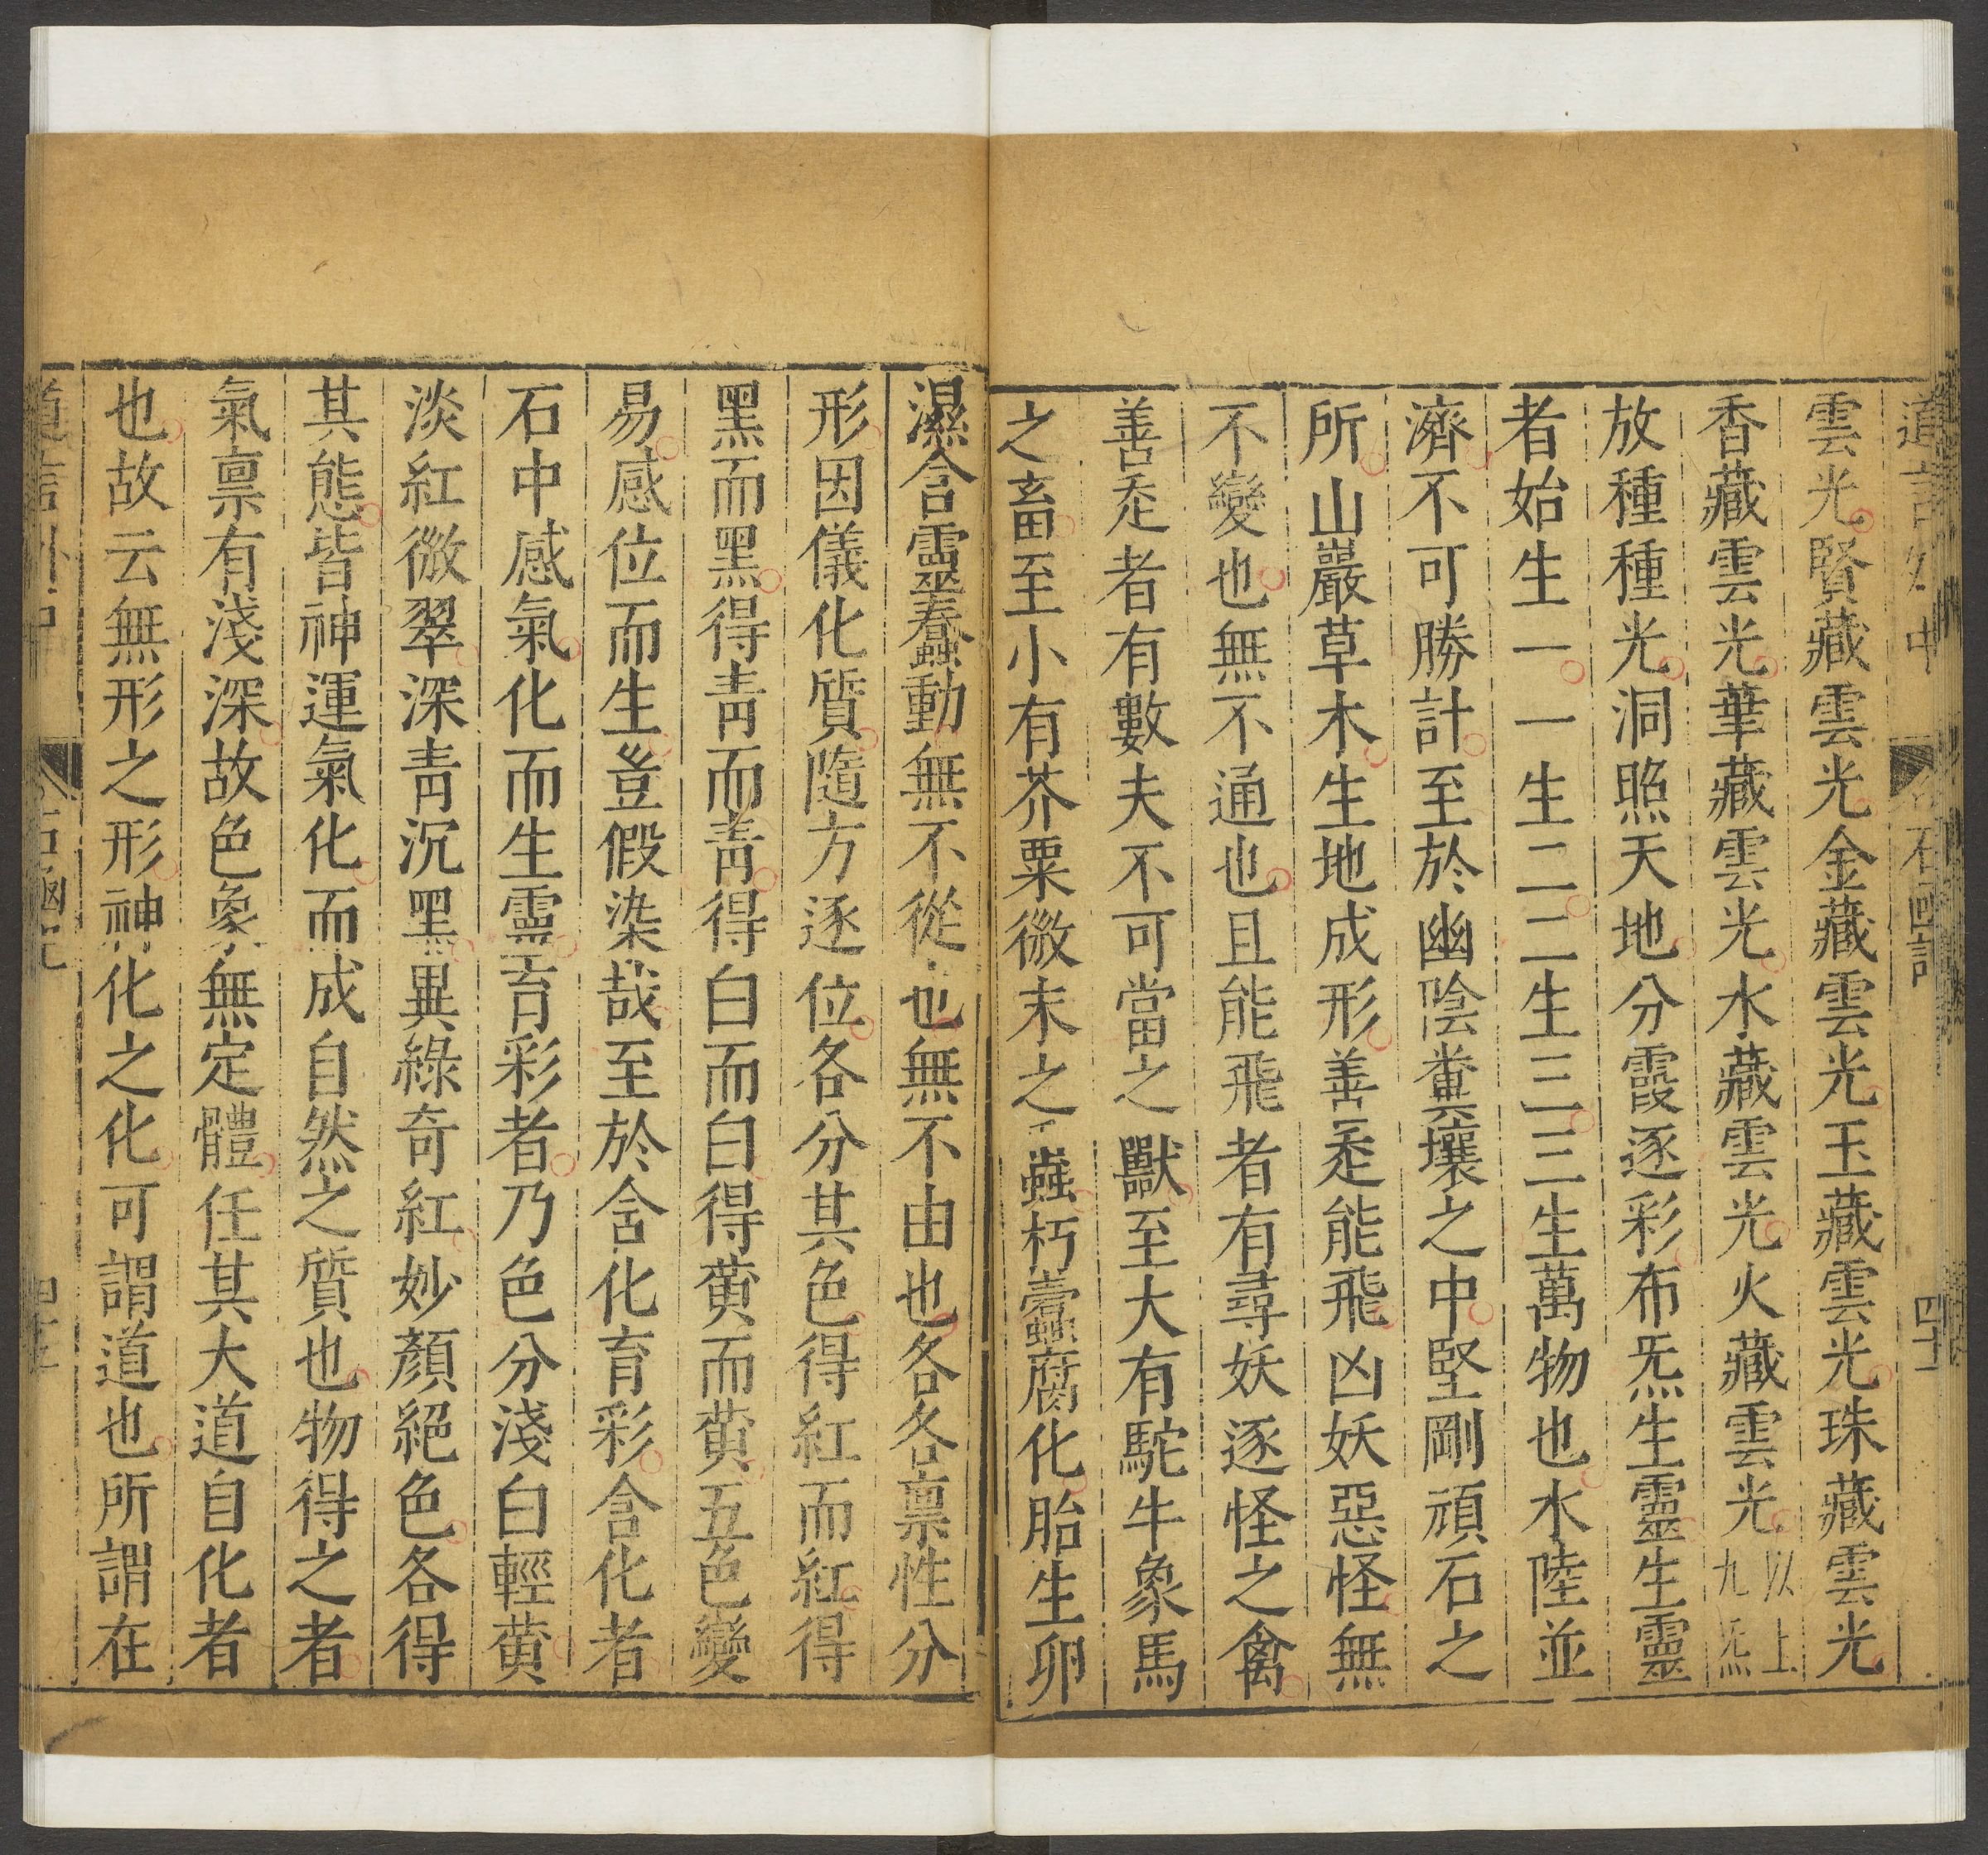 雲光賢藏雲光金藏雲光玉藏雲光珠藏雲光
香藏雲光華藏雲光水藏雲光火藏雲光以上九炁
放種種光洞照天地分霞逐彩布炁生靈生靈
者始生一一生二二生三三生萬物也水陸並
濟不可勝計至於幽陰糞壤之中堅剛頑石之
所山巖草木生地成形善走能飛凶妖惡怪無
不變也無不通也且能飛者有尋妖逐怪之禽
善走者有數夫不可當之獸至大有駝牛象馬
之畜至小有芥粟微末之蟲朽蠹腐化胎生卵
濕含靈蠢動無不從也無不由也各各禀性分
形因儀化質隨方逐位各分其色得紅而紅得
黑而黑得靑而靑得白而白得黄而黄五色變
易感位而生豈假染哉至於含化育彩含化者
石中感氣化而生靈育彩者乃色分淺白輕黄
淡紅微翠深靑沉黑異綠奇紅妙顏絕色各得
其態皆神運氣化而成自然之質也物得之者
氣禀有淺深故色象無定體任其大道自化者
也故云無形之形神化之化可謂道也所謂在